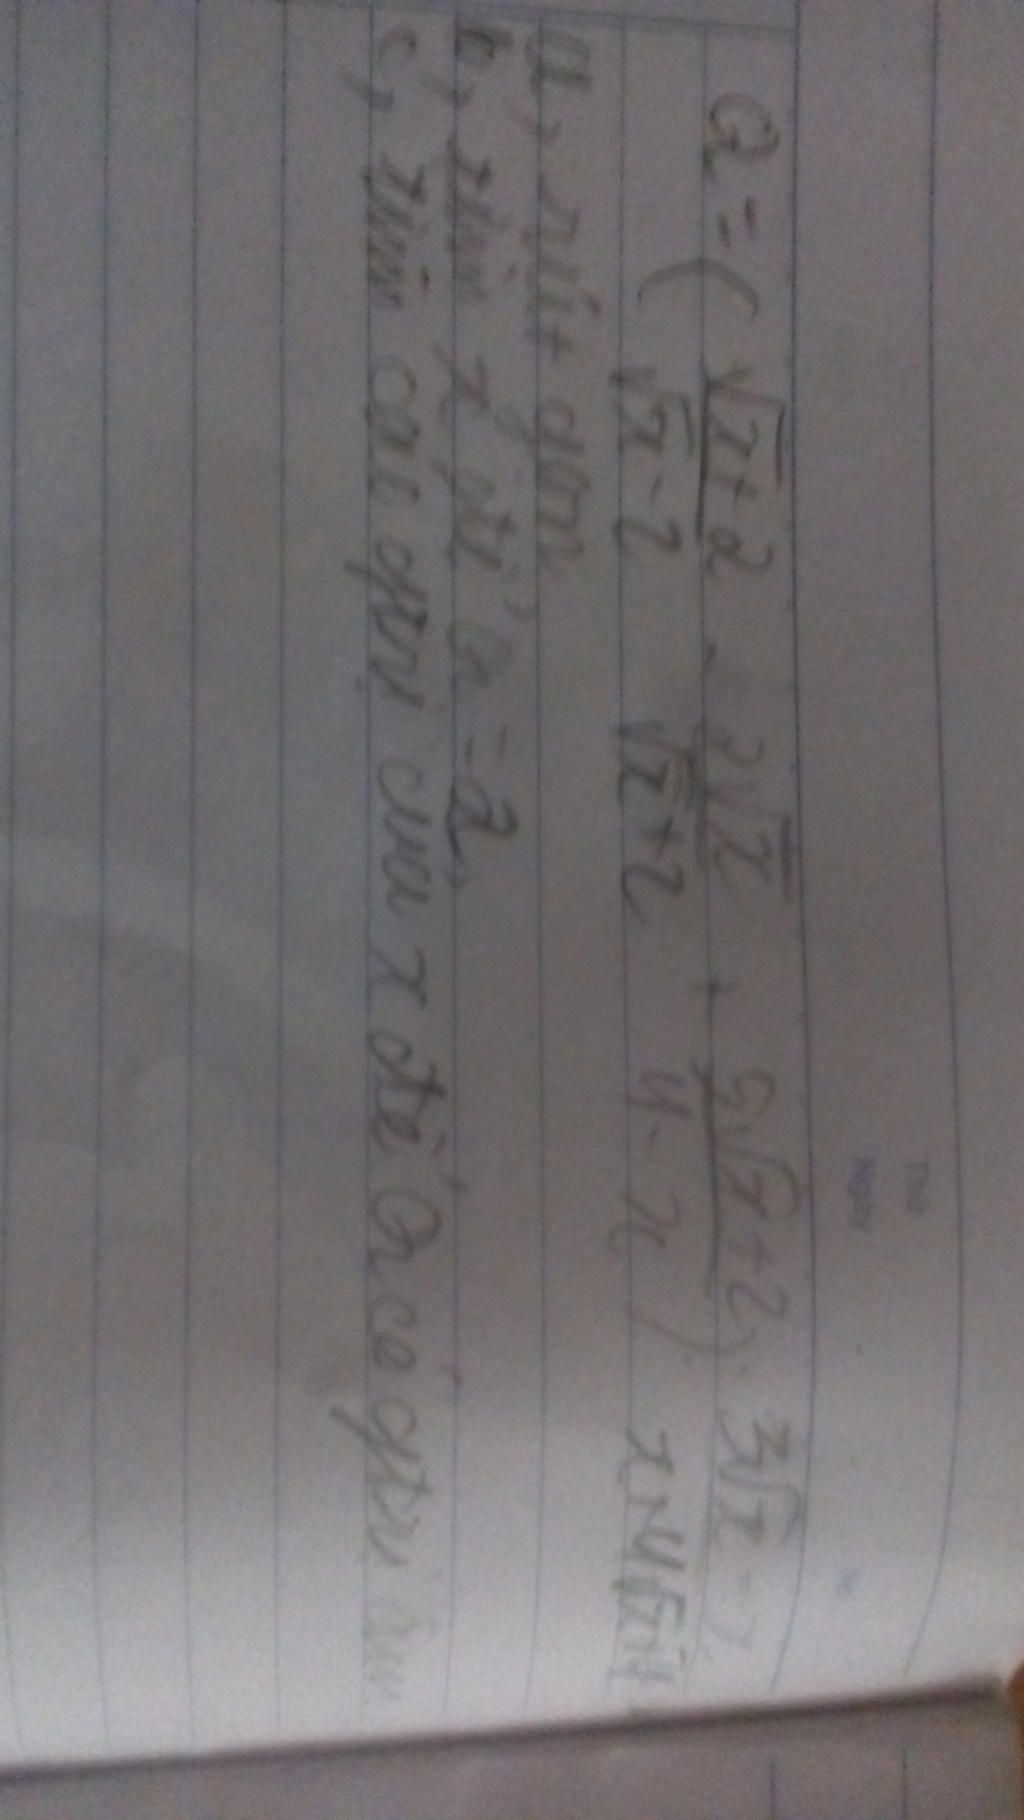 Q = ( \frac{\sqrt{x}+2}{\sqrt{x}-2} - \frac{2\sqrt{x}}{\sqrt{x}+2} + \frac{5\sqrt{x}+2}{4-x} ) . \frac{3\sqrt{x}-x}{x+4\sqrt{x}+4}
a, rút gọn
b, tìm x để Q = 2
c, tìm các giá trị của x để Q có giá trị âm